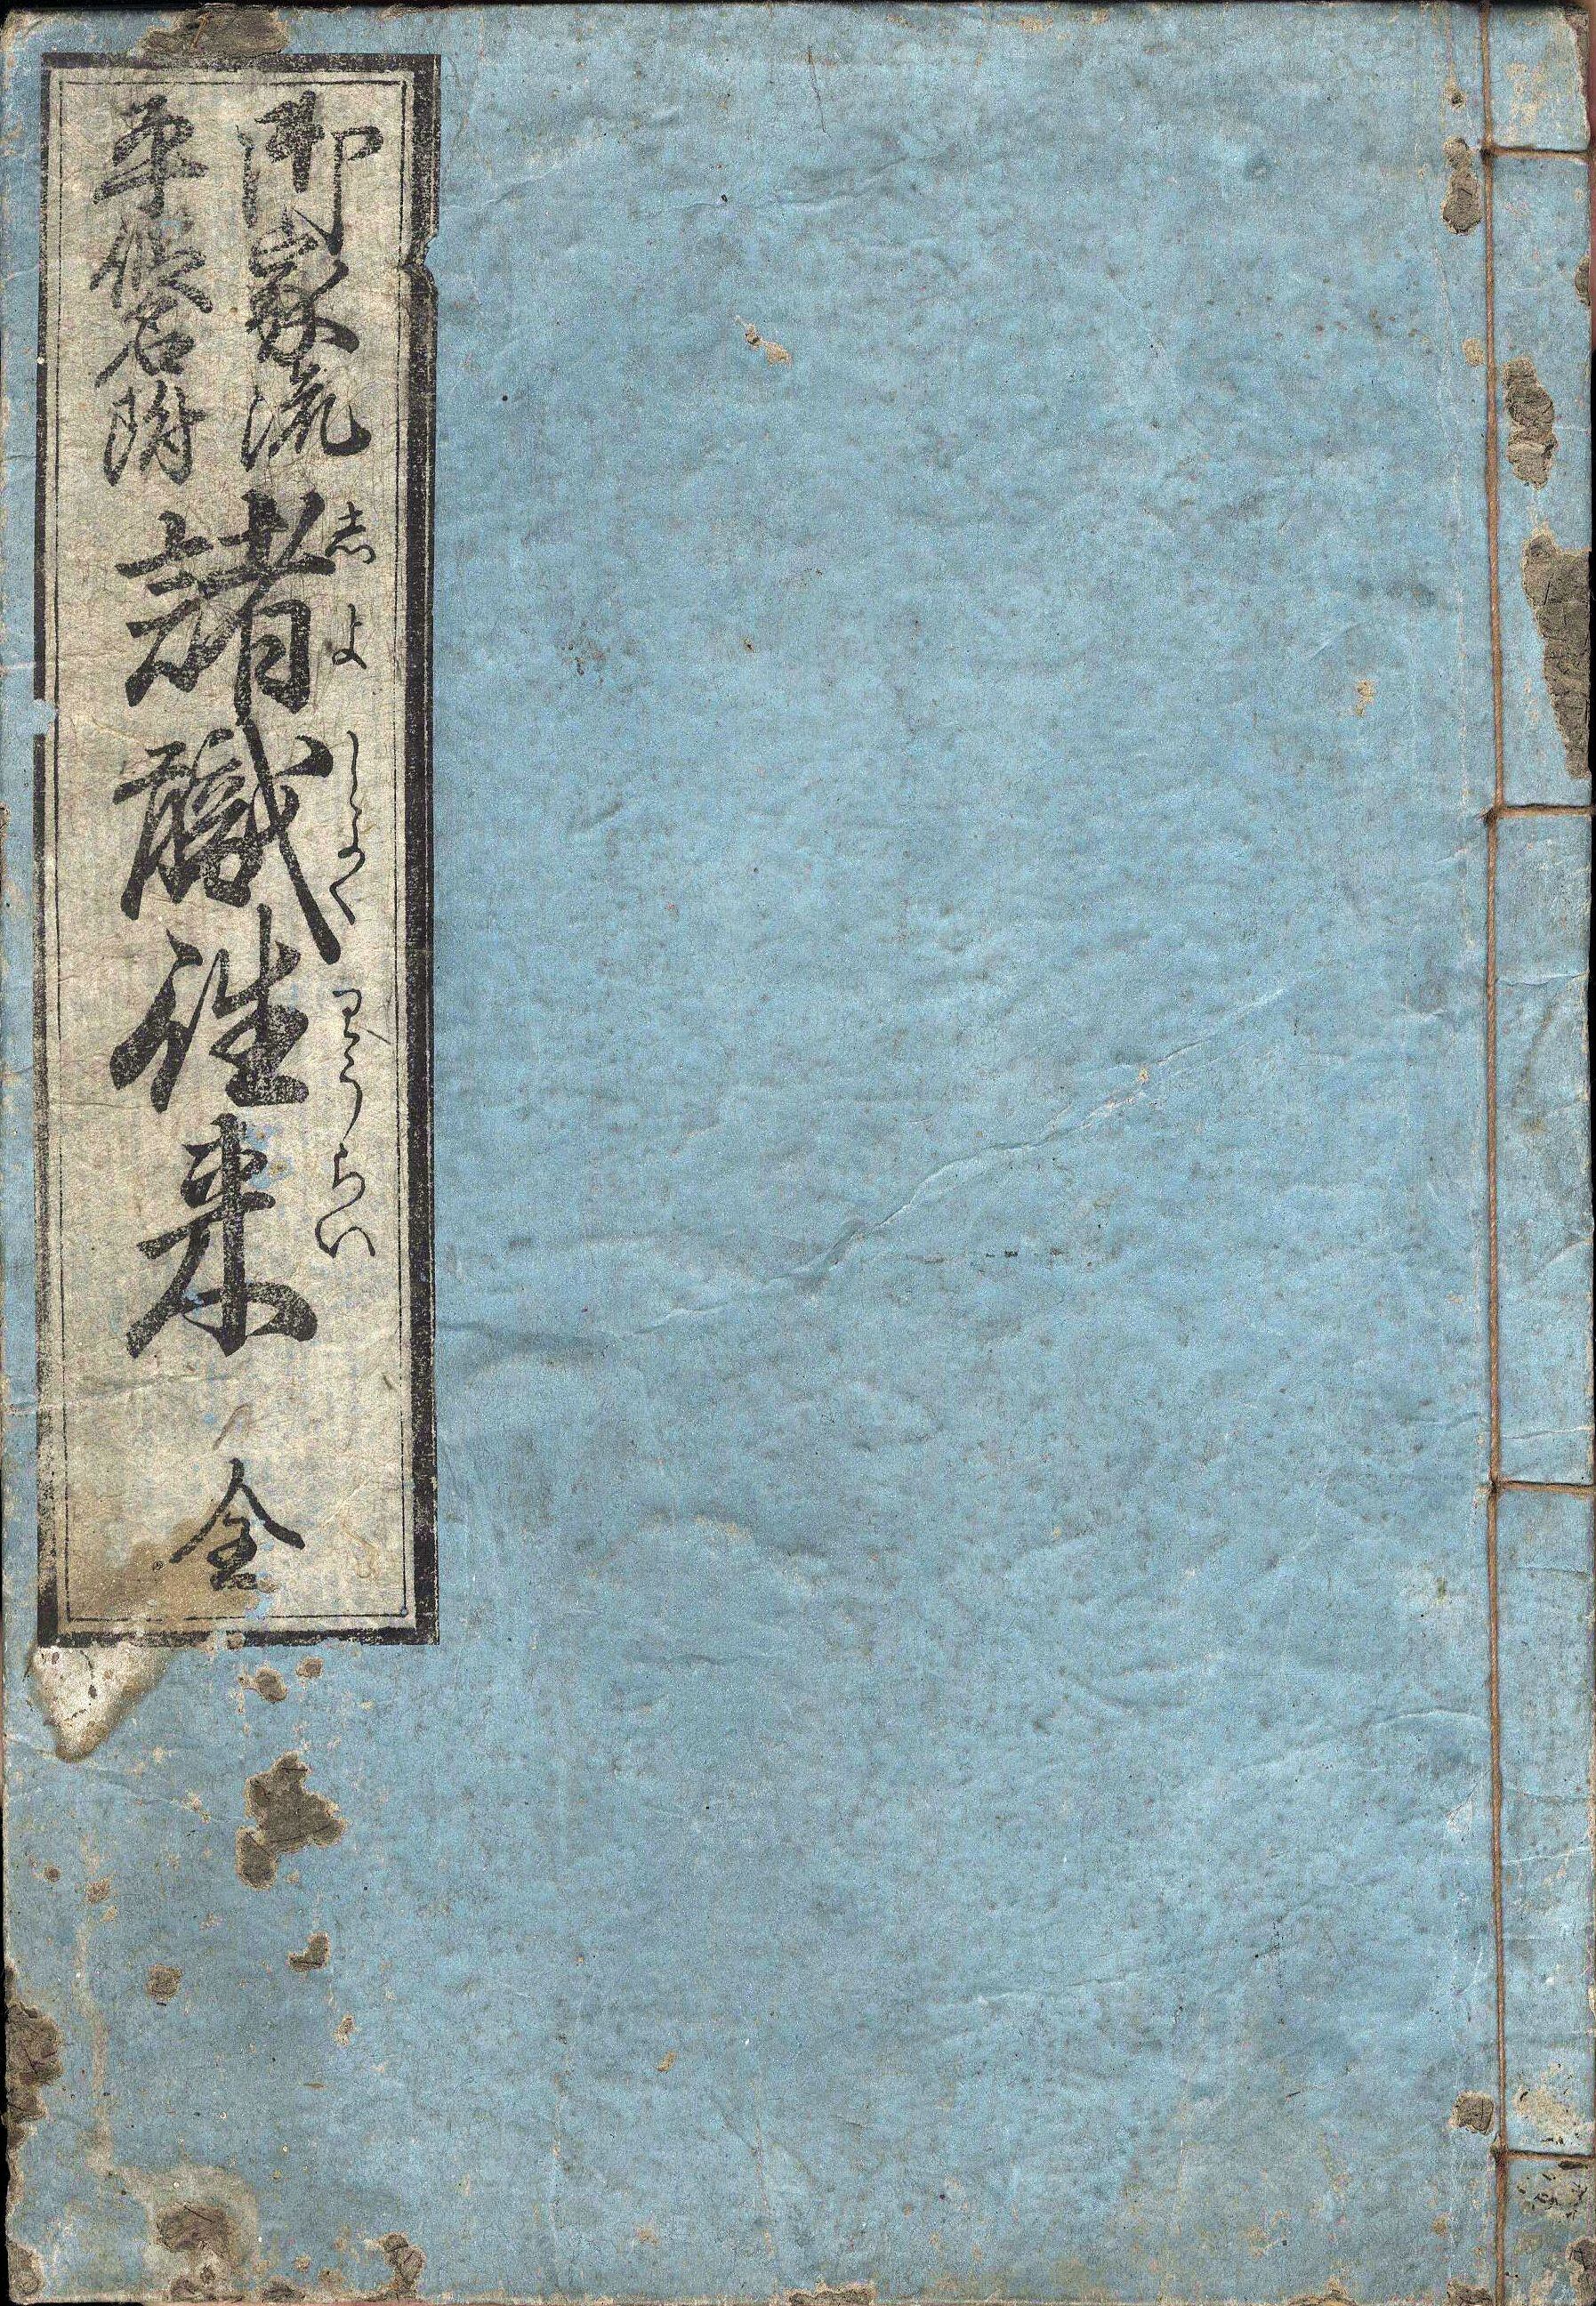 御家流
平假名附
諸職往来 全
志よ しよく わうらい